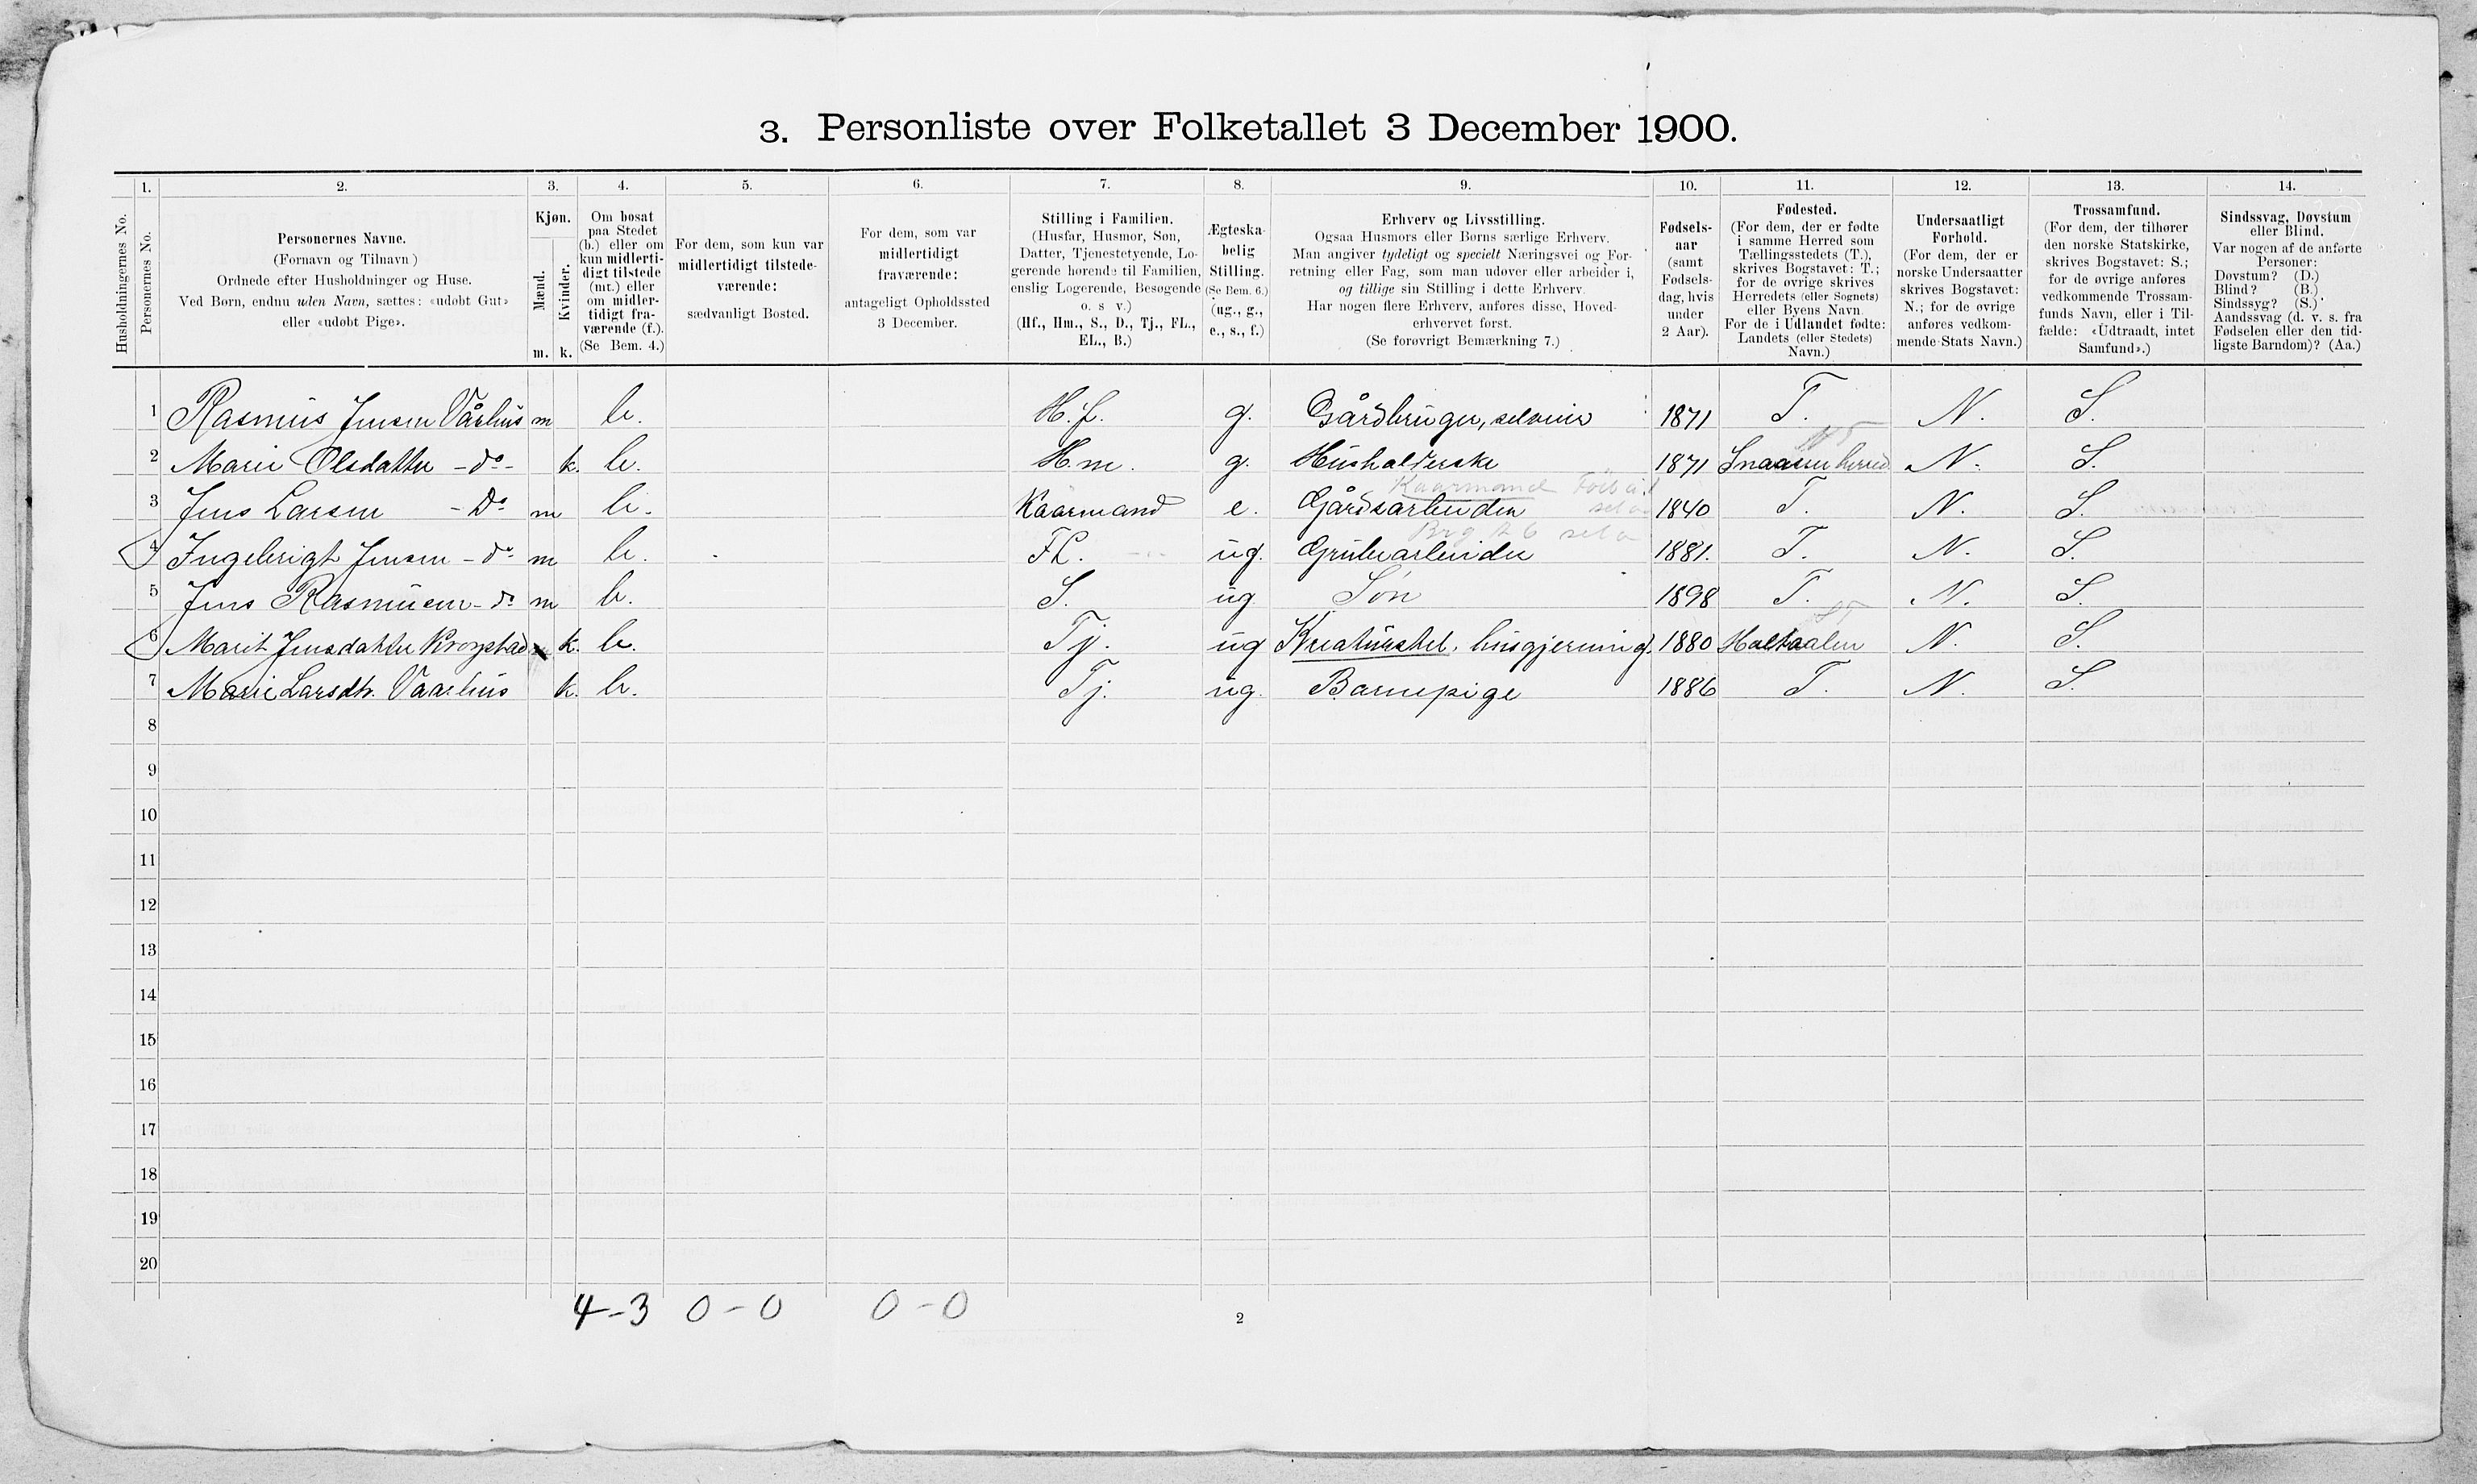 3. Personliste over Folketallet 3 December 1900.
1. 2. 3. 4. 5. 6. 7. 8. 9. 10. 11. 12. 13. 14.
Husholdningernes No.
Personernes No.
Personernes Navne.
(Fornavn og Tilnavn)
Ordnede efter Husholdninger og Huse.
Ved Børn, endnu uden Navn, sættes: «udøbt Gut»
eller «udøbt Pige».
Kjøn.
Mænd.
Kvinder.
m. k.
Om bosat
paa Stedet
(b.) eller om
kun midlerti-
digt tilstede
(mt.) eller
om midler-
tidigt fra-
værende (f.).
(Se Bem. 4.)
For dem, som kun var
midlertidigt tilstede-
værende:
sædvanligt Bosted.
For dem, som var
midlertidigt
fraværende:
antageligt Opholdssted
3 December.
Stilling i Familien.
(Husfar, Husmor, Søn,
Datter, Tjenestetyende, Lo-
gerende hørende til Familien,
enslig Logerende, Besøgende
o. s v.)
(Hf., Hm., S., D., Tj., FL.,
EL., B.)
Ægteska-
belig
Stilling.
(Se Bem. 6.)
(ug., g.,
e., s., f.)
Erhverv og Livsstilling.
Ogsaa Husmors eller Børns særlige Erhverv.
Man angiver tydeligt og specielt Næringsvei og For-
retning eller Fag, som man udøver eller arbeider i,
og tillige sin Stilling i dette Erhverv.
Har nogen flere Erhverv, anføres disse, Hoved-
erhvervet først.
(Se forøvrigt Bemærkning 7.)
Fødsels-
aar
(samt
Fødsels-
dag, hvis
under
2 Aar).
Fødested.
(For dem, der er fødte
i samme Herred som
Tællingsstedets (T.),
skrives Bogstavet: T.;
for de øvrige skrives
Herredets (eller Sognets)
eller Byens Navn.
For de i Udlandet fødte:
Landets (eller Stedets)
Navn.)
Undersaatligt
Forhold.
(For dem, der er
norske Undersaatter
skrives Bogstavet:
N.; for de øvrige
anføres vedkom-
mende Stats Navn.)
Trossamfund.
(For dem, der tilhører
den norske Statskirke,
skrives Bogstavet: S.;
for de øvrige anføres
vedkommende Trossam-
funds Navn, eller i Til-
fælde: «Udtraadt, intet
Samfund».)
Sindssvag, Døvstum
eller Blind.
Var nogen af de anførte
Personer:
Døvstum? (D.)
Blind? (B.)
Sindssyg? (S.)
Aandssvag (d. v. s. fra
Fødselen eller den tid-
ligste Barndom)? (Aa.)
1 Rasmus Jensen Vårhus m b. H.f. g. Gårdbruger, selveier 1871 T. N. S.
2 Marie Olsdatter - do - k. b. H.m. g. Husholderske 1871 Snaasen herred N. S.
Kaarmand
3 Jens Larsen - Do m b. Kaarmand e. Gårdsarbeider 1840 T. N. S.
4 Ingebrigt Jensen - do m b. FL. ug. Grubearbeider 1881. T. N. S.
5 Jens Rasmusen - do m b. S. ug Søn 1898 T. N. S.
6 Marit Jensdatter Krogstad k. b. Tj. ug Kreaturstel, husgjerning. 1880 Holtaalen N. S.
7 Marie Larsdtr. Vaarhus k. b. Tj. ug. Barnepige 1886 T. N. S.
8
9
10
11
12
13
14
15
16
17
18
19
20
4-3 0-0 0-0
2